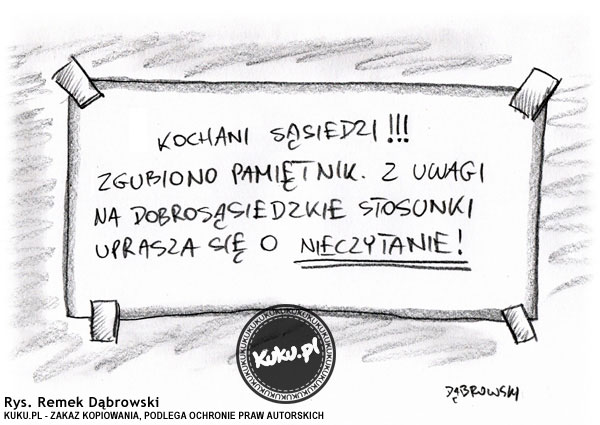 KOCHANI SĄSIEDZI!!!
ZGUBIONO PAMIĘTNIK. Z UWAGI
NA DOBROSĄSIEDZKIE STOSUNKI
UPRASZA SIĘ O NIECZYTANIE!
KUKU.PL
DĄBROWSKI
Rys. Remek Dąbrowski
KUKU.PL - ZAKAZ KOPIOWANIA, PODLEGA OCHRONIE PRAW AUTORSKICH